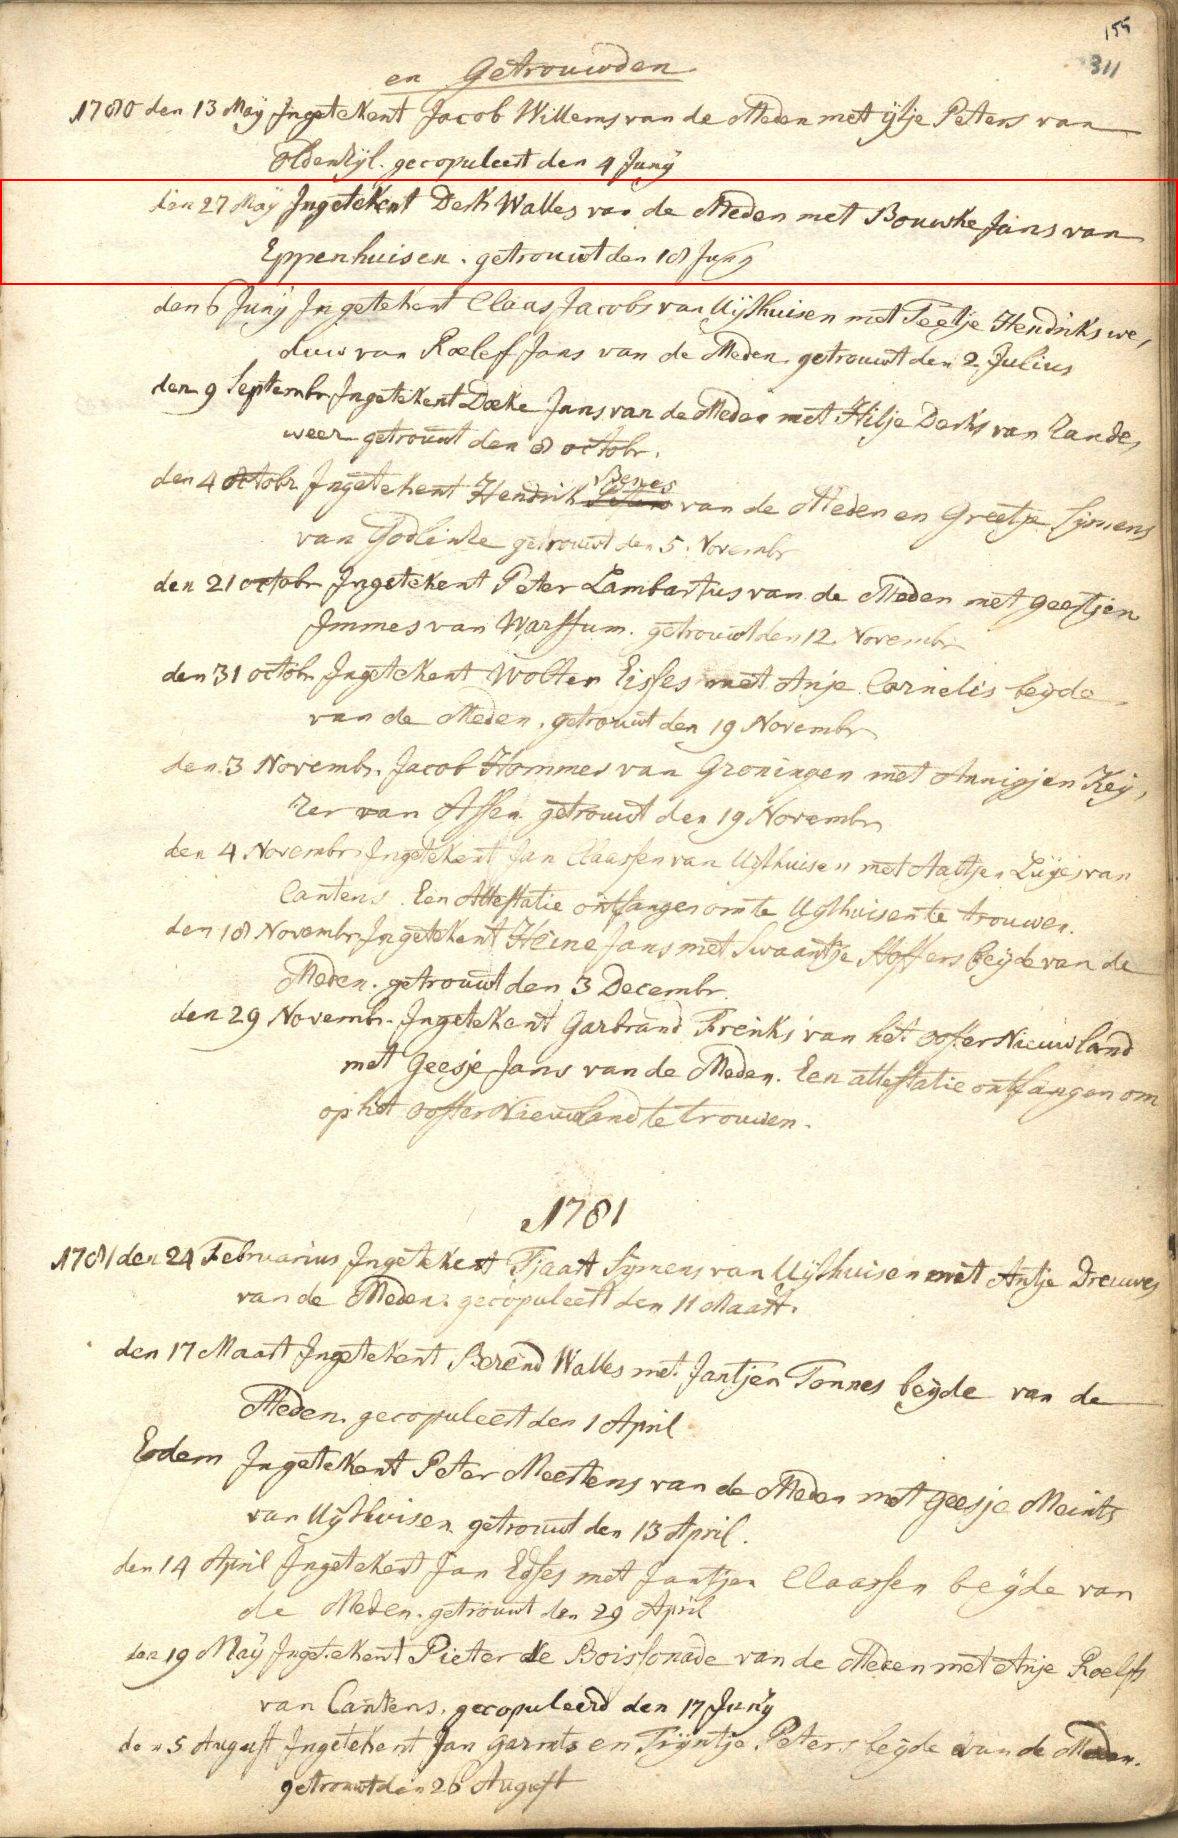 155
311
en Getrouwden
1780 den 13 Maÿ Ingetekent Jacob Willems van de Meden met ijtje Peters van
Oldenzijl. gecopuleert den 4 Junÿ
den 27 Maÿ Ingetekent Derk Walles van de Meden met Bouwke Jans van
Eppenhuisen. getrouwt den 18 Junÿ
den 6 Junÿ Ingetekent Claas Jacobs van Uijthuisen met Teetje Hendriks we,
duw van Roelef Jans van de Meden. getrouwt den 2 Julius
den 9 Septembr Ingetekent Doeke Jans van de Meden met Hilje Derks van Zande,
weer getrouwt den 8 octobr.
den 4 octobr Ingetekent Hendrik Benes van de Meden en Greetje Sijmens
van Godlinse getrouwt den 5. Novembr
den 21 octobr Ingetekent Peter Lambartus van de Meden met geestjen
Immes van Warffum. getrouwt den 12 Novembr
den 31 octobr Ingetekent Wolter Eisses met Anje Cornelis beÿde
van de Meden. getrouwt den 19 Novembr
den 3 Novembr. Jacob Hommes van Groningen met Annigjen Keÿ,
zer van Assen getrouwt den 19 Novembr
den 4 Novembr Ingetekent Jan Claassen van Uijthuisen met Aaltjen van
Cantens. Een Attestatie ontfangen om te Uijthuisen te trouwen.
den 18 Novembr Ingetekent Heine Jans met Swaantje beÿde van de
Meden. getrouwt den 3 Decembr.
den 29 Novembr. Ingetekent Garbrand Frenks van het ooster Nieuwland
met geesje Jans van de Meden. Een attestatie ontfangen om
op het ooster Nieuwland te trouwen.
1781
1781 den 24 Februarius Ingetekent Tjaart Sijmens van Uijthuisen met Antje Dreuwes
van de Meden. gecopuleert den 11 Maart.
den 17 Maart Ingetekent Berend Walles met Jantjen Tonnes beÿde van de
Meden. gecopuleert den 1 April
Eodem Ingetekent Peter Meertens van de Meden met geesje Meints
van Uijthuisen getrouwt den 13 April.
den 14 April Ingetekent Jan Edses met Jantjen Claassen beÿde van
de Meden. getrouwt den 29 April
den 19 Maÿ Ingetekent Pieter de Boissonade van de Meden met Anje Roelfs
van Cantens. gecopuleerd den 17 Junÿ
den 5 August Ingetekent Jan Garmts en Trijntje Peters beÿde van de Meden.
getrouwt den 26 August